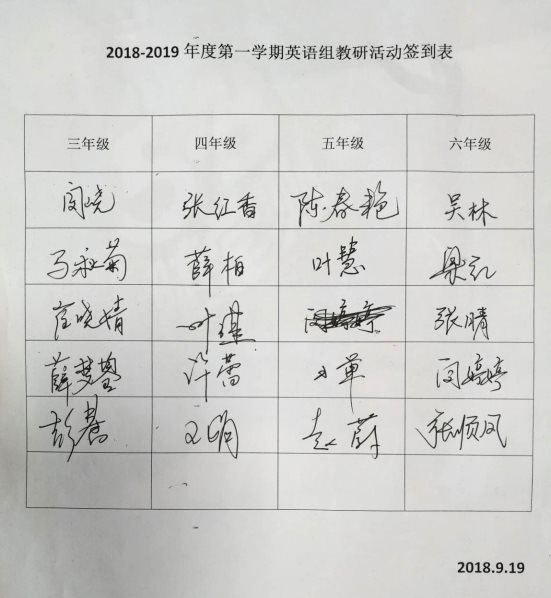 2018-2019 年度第一学期英语组教研活动签到表
三年级 四年级 五年级 六年级
闵晓 张红香 陈春艳 吴林
马永菊 薛柏 叶慧 梁红
崔晓倩 叶瑾 张晴
薛梦 许蕾 单 闵婷婷
彭 王明 赵蔚 张顺风
2018.9.19